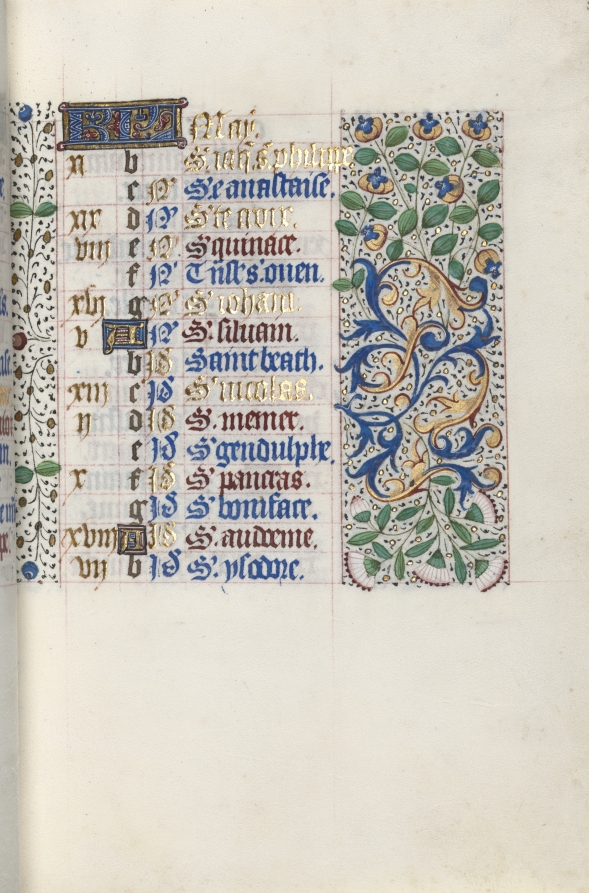 KL May.
xi b S. iaq̄ s. philippe
c N Se anastaise.
xix d N Ste croix.
viii e N S quiriace.
f N Trāsl s. ouen.
xvi g N S iohan.
v A N S. siluain.
b Id Saint beath.
xiii c Id S nicolas.
ii d Id S. memer.
e Id S gendulphe.
x f Id S. pancras.
g Id S. boniface.
xviii A Id S. audoeme.
vii b Id S. ysodore.